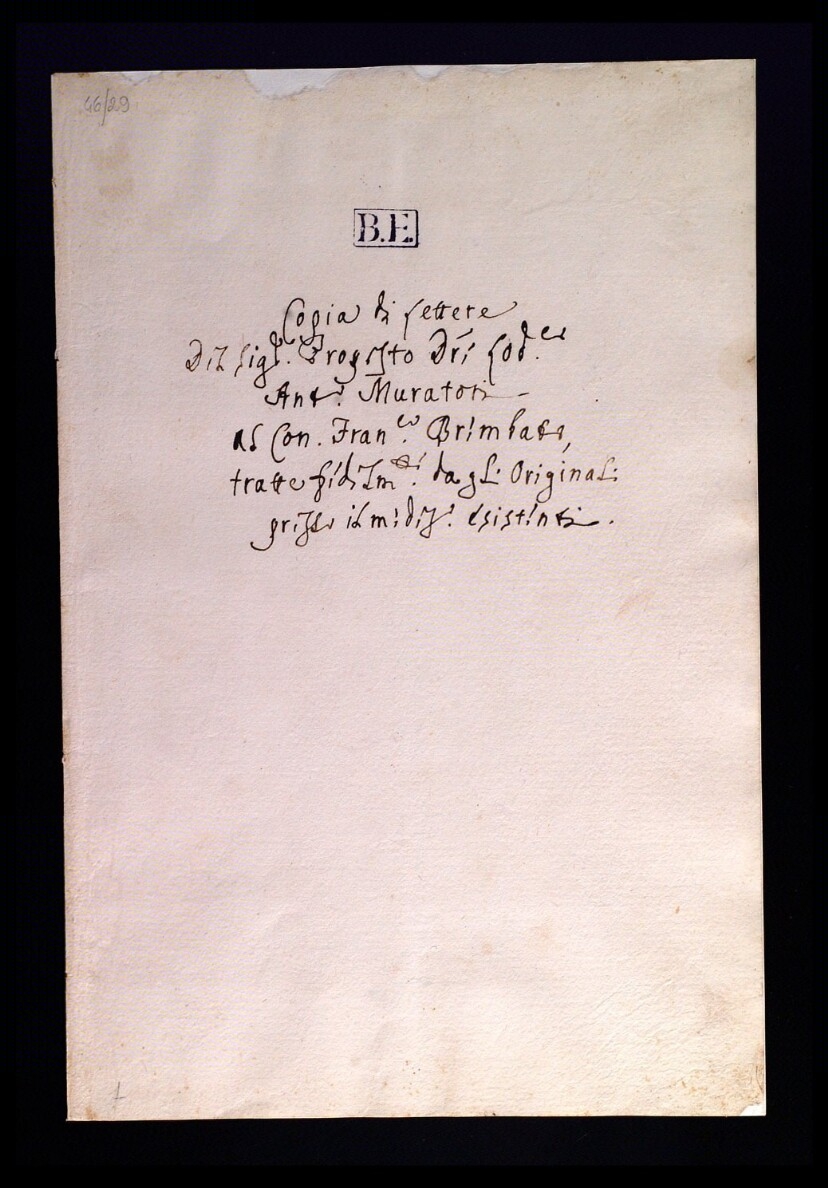 46/29
B.E.
Copia di Lettere
Del Sig.r Proposto Dre Lod.co
Ant.o Muratori
al Con. Fran.co Brembati,
tratte fidelm.te dagli Originali
presso il medes.o esistenti.
1